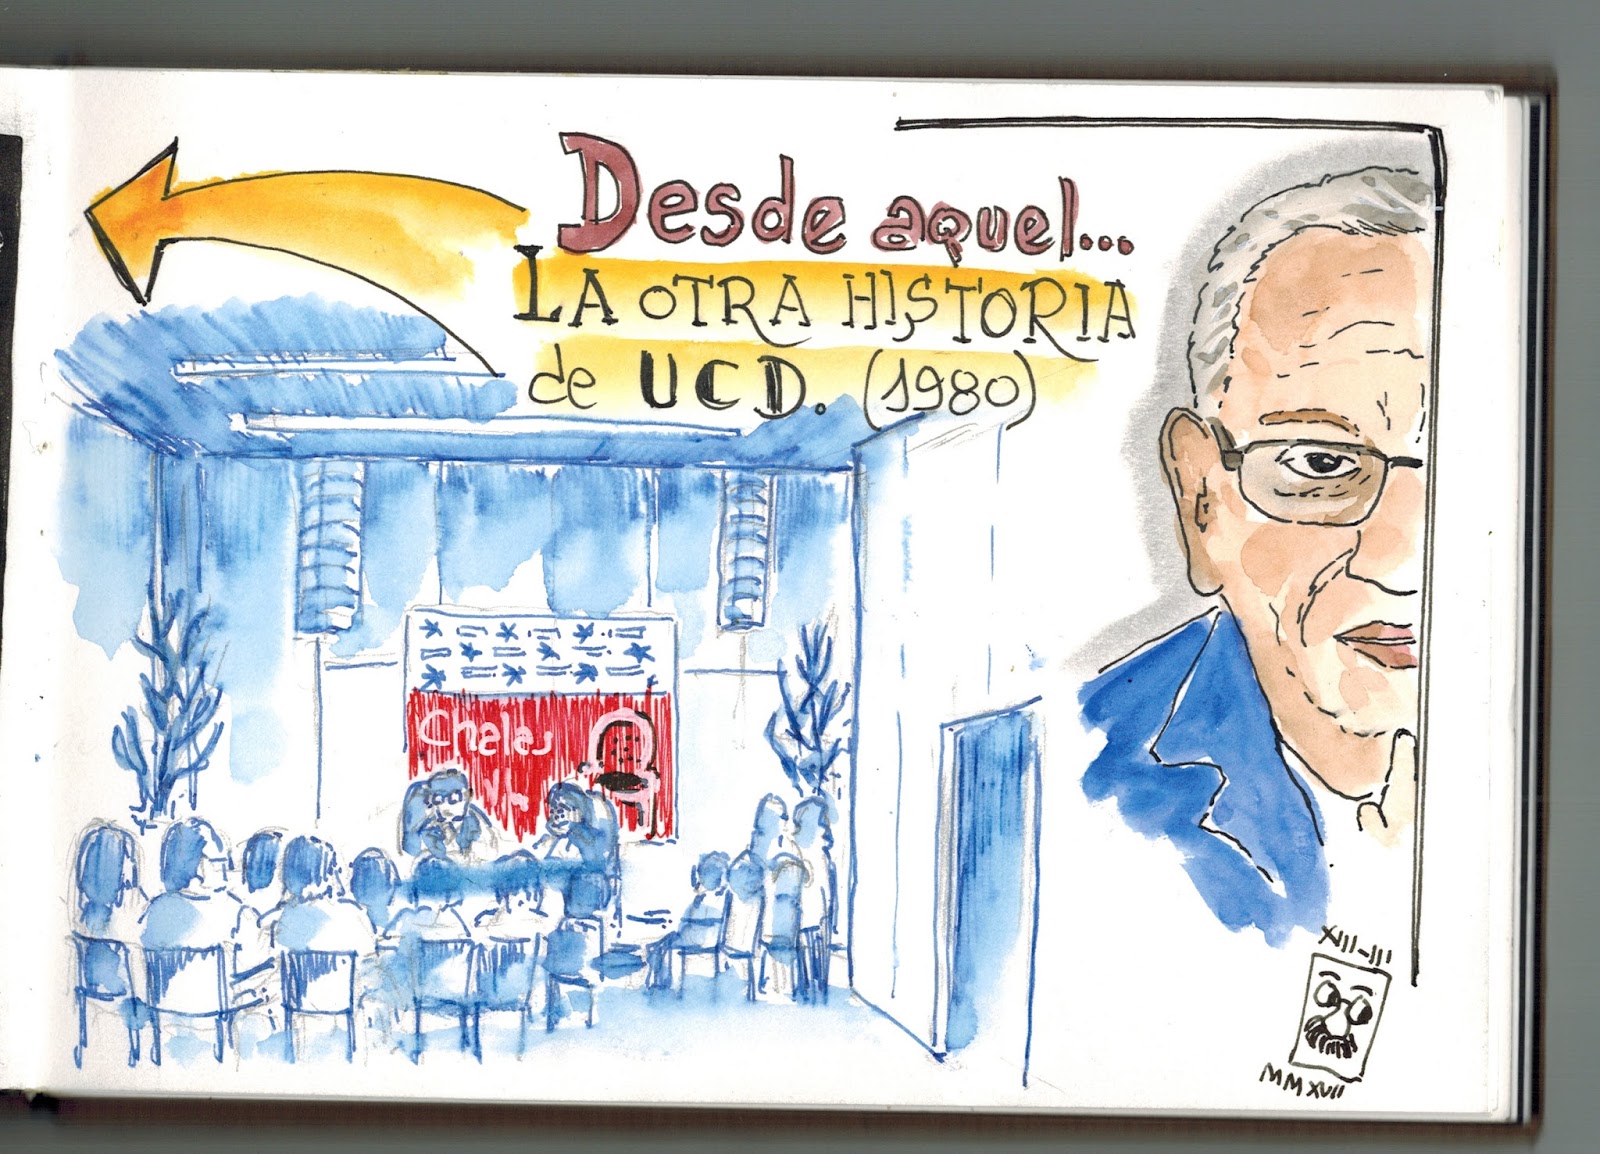 Desde aquel...
LA OTRA HISTORIA
de UCD. (1980)
XIII-III
MMXVII